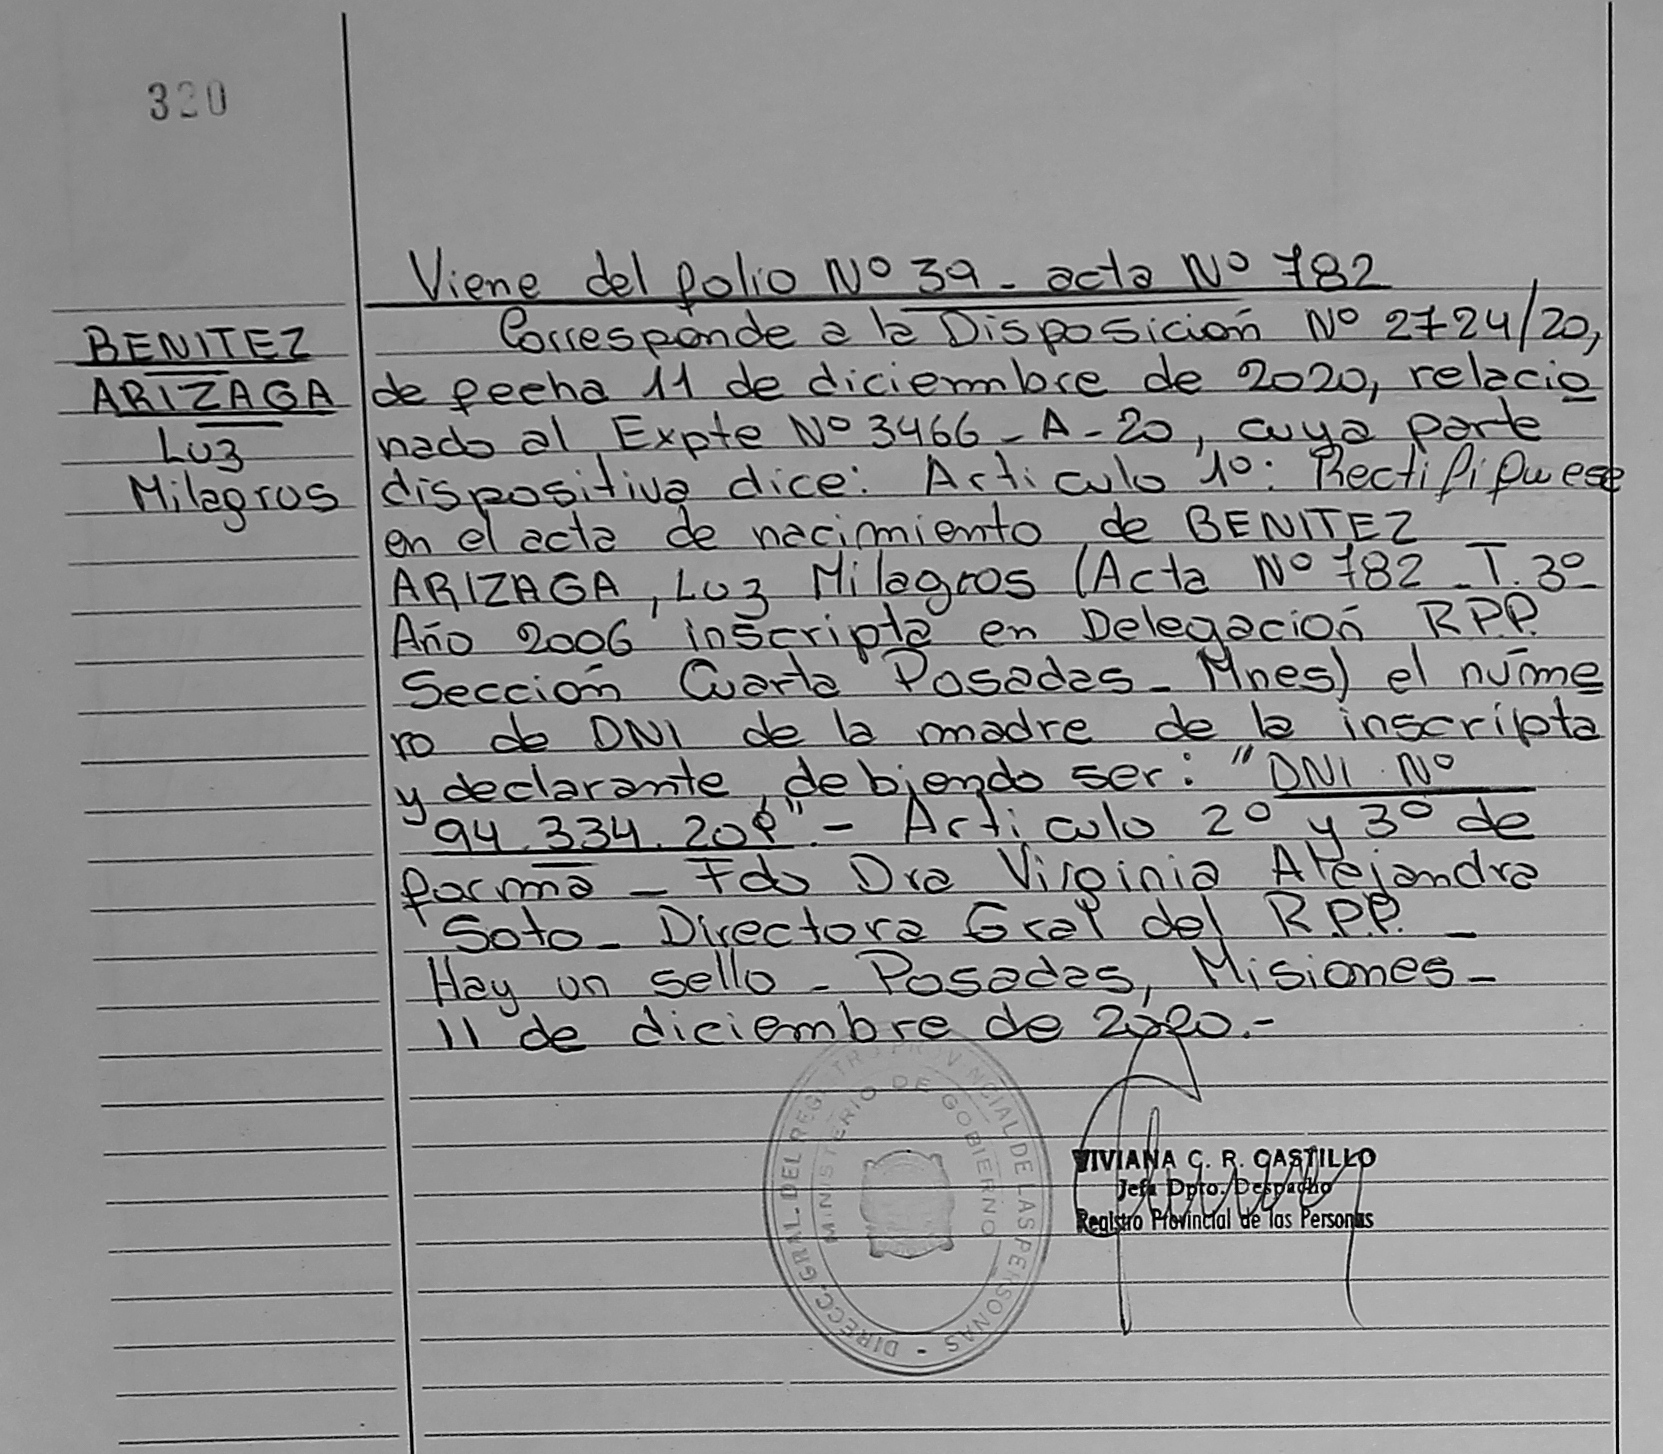 320
Viene del folio Nº 39 - acta Nº 782
BENITEZ
ARIZAGA
Luz
Milagros
Corresponde a la Disposición Nº 2724/20,
de fecha 11 de diciembre de 2020, relacio
nado al Expte Nº 3466 - A - 20, cuya parte
dispositiva dice: Articulo 1º: Rectifiquese
en el acta de nacimiento de BENITEZ
ARIZAGA, Luz Milagros (Acta Nº 782 - T. 3º
Año 2006 inscripta en Delegación R.P.P.
Sección Cuarta Posadas - Mnes) el núme
ro de DNI de la madre de la inscripta
y declarante, debiendo ser: "DNI Nº
94.334.20 " - Articulo 2º y 3º de
forma - Fdo Dra Virginia Alejandra
Soto - Directora Gral del R.P.P. -
Hay un sello - Posadas, Misiones -
11 de diciembre de 2020.-
DIRECC. GRAL. DEL REGISTRO PROVINCIAL DE LAS PERSONAS
MINISTERIO DE GOBIERNO
VIVIANA C. R. CASTILLO
Jefa Dpto. Despacho
Registro Provincial de las Personas